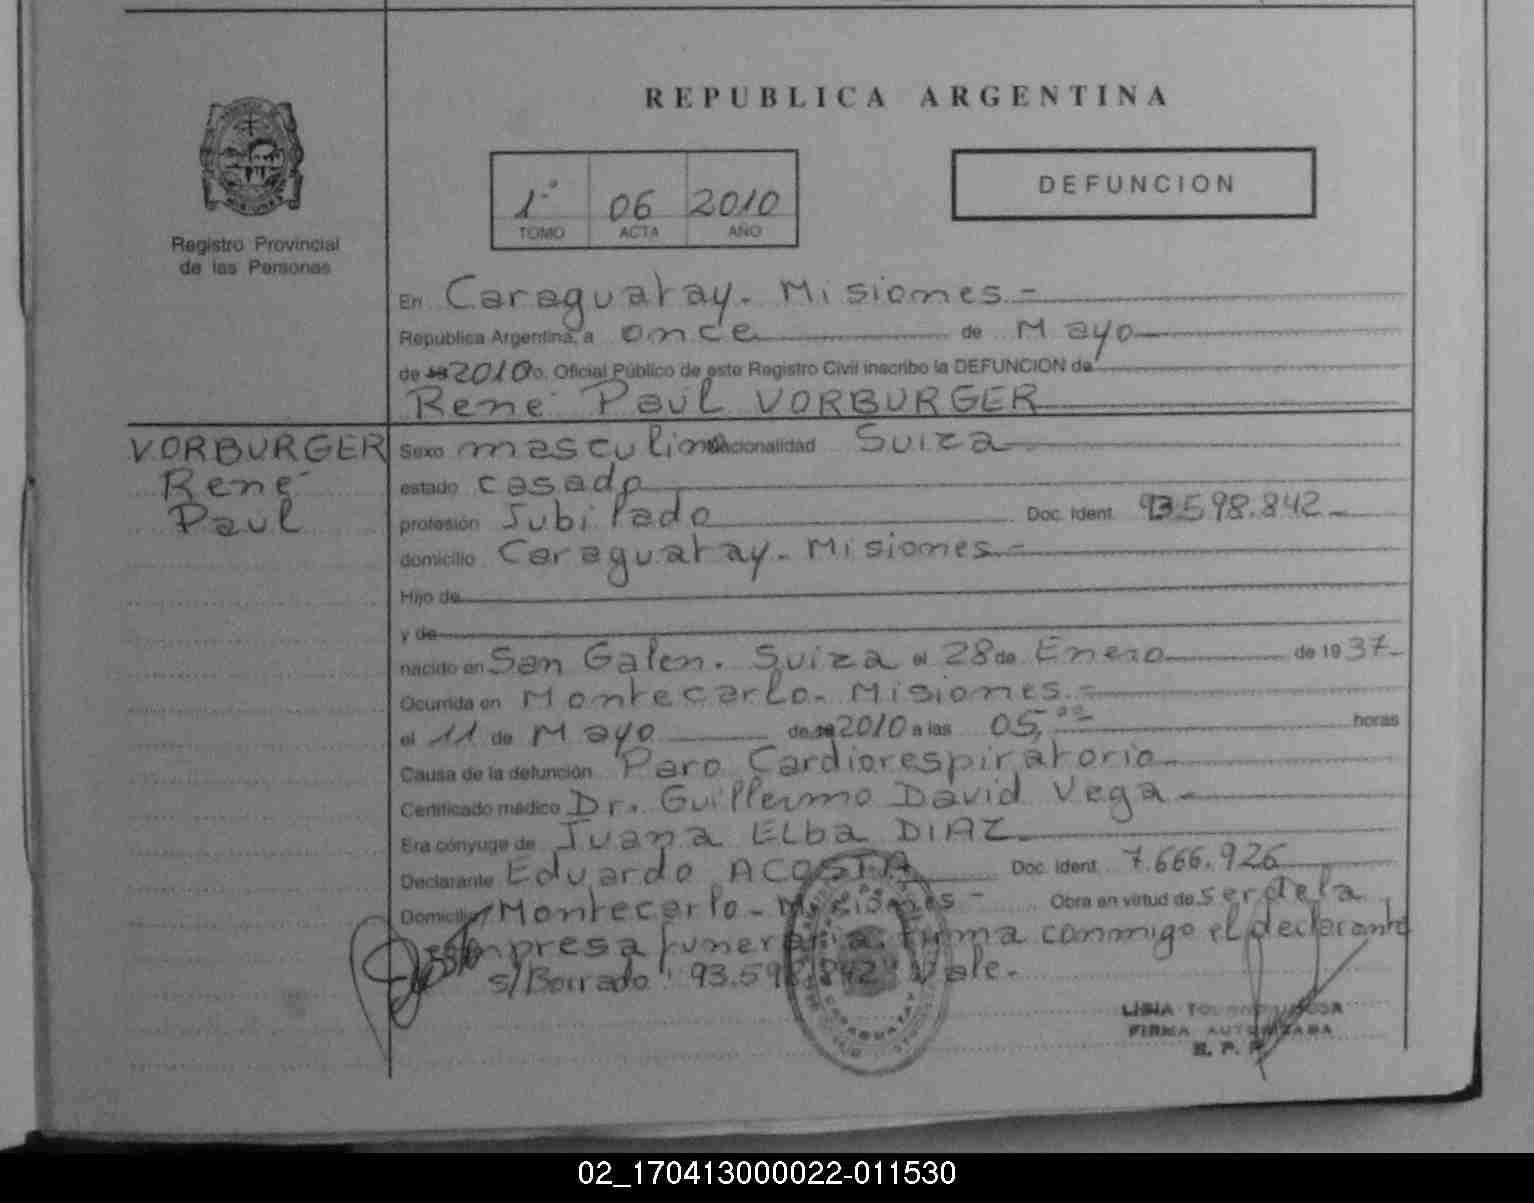 REPUBLICA ARGENTINA
1º 06 2010
TOMO ACTA AÑO
DEFUNCION
Registro Provincial
de las Personas
En Caraguatay. Misiones.-
República Argentina, a once de Mayo
de 19 2010 o. Oficial Público de este Registro Civil inscribo la DEFUNCION de
René Paul VORBURGER
VORBURGER
René
Paul
Sexo masculino nacionalidad Suiza
estado casado
profesión Jubilado Doc. Ident. 93.598.842.-
domicilio Caraguatay. Misiones.-
Hijo de
y de
nacido en San Galen. Suiza el 28 de Enero de 1937.-
Ocurrida en Montecarlo. Misiones.-
el 11 de Mayo de 19 2010 a las 05,00 horas
Causa de la defunción Paro Cardiorespiratorio.-
Certificado médico Dr. Guillermo David Vega.-
Era cónyuge de Juana ELba DIAZ.-
Declarante Eduardo ACOSTA Doc. Ident. 7.666.926
Domicilio Montecarlo. Misiones.- Obra en virtud de ser de la
empresa funeraria. Firma conmigo el declarante
s/Borrado: 93.598.842" Vale.-
CARAGUATAY
LIBIA
FIRMA AUTORIZADA
R. P. P.
02_170413000022-011530